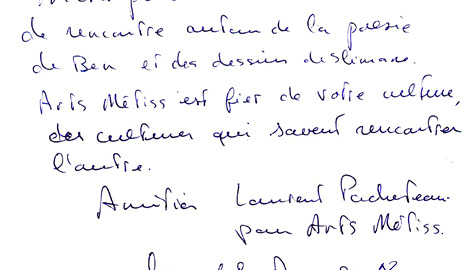 de rencontre autour de la poésie
de Ben et des dessins de Slimane.
Arts Métiss est fier de votre culture,
des cultures qui savent rencontrer
l'autre.
Amitiés Laurent Pacheteau
pour Arts Métiss.